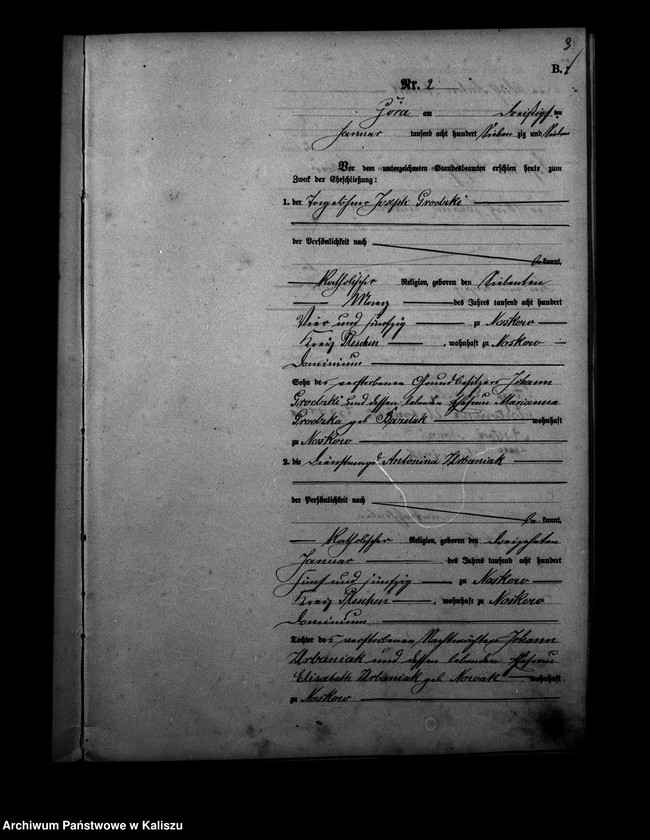 3
B.
Nr. 2
Góra am Dreißigsten
Januar tausend acht hundert Sieben zig und Sieben
Vor dem unterzeichneten Standesbeamten erschien heute zum
Zweck der Eheschließung:
1. der Tagelöhner Joseph Grodzki
der Persönlichkeit nach
be kannt,
Katholischer Religion, geboren den Siebenten
März des Jahres tausend acht hundert
Vier und fünfzig zu Noskowo
Kreis Pleschen, wohnhaft zu Noskowo
Dominium
Sohn des verstorbenen Grundbesitzers Johann
Grodzki und dessen lebenden Ehefrau Marianna
Grodzka geb wohnhaft
zu Noskowo
2. die Dienstmagd Antonina Urbaniak
der Persönlichkeit nach
be kannt,
Katholischer Religion, geboren den Dreizehnten
Januar des Jahres tausend acht hundert
Fünf und fünfzig zu Noskowo
Kreis Pleschen, wohnhaft zu Noskowo
Dominium
Tochter des verstorbenen Nachtwächters Johann
Urbaniak und dessen lebenden Ehefrau
Elisabeth Urbaniak geb Nowak wohnhaft
zu Noskowo
Archiwum Państwowe w Kaliszu